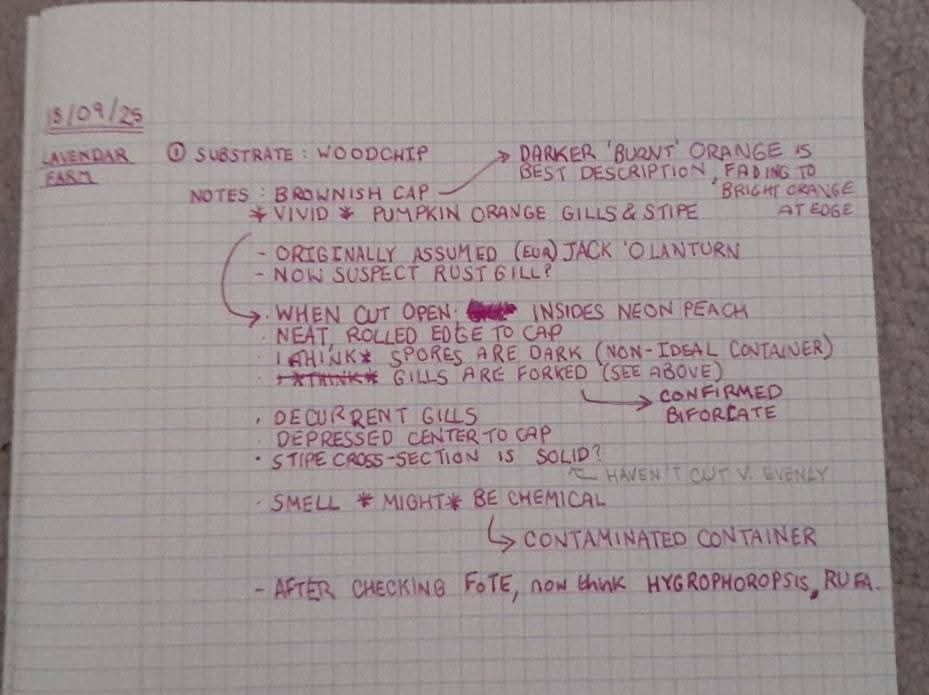 18/09/25
LAVENDAR FARM
① SUBSTRATE : WOODCHIP
NOTES : BROWNISH CAP
→ DARKER 'BURNT' ORANGE IS
BEST DESCRIPTION, FADING TO
BRIGHT ORANGE
AT EDGE
* VIVID * PUMPKIN ORANGE GILLS & STIPE
- ORIGINALLY ASSUMED (EUR) JACK 'O LANTURN
- NOW SUSPECT RUSTGILL?
· WHEN CUT OPEN: INSIDES NEON PEACH
· NEAT, ROLLED EDGE TO CAP
· I *THINK* SPORES ARE DARK (NON-IDEAL CONTAINER)
· I *THINK* GILLS ARE FORKED (SEE ABOVE)
→ CONFIRMED
BIFORCATE
· DECURRENT GILLS
· DEPRESSED CENTER TO CAP
· STIPE CROSS-SECTION IS SOLID?
HAVEN'T CUT V. EVENLY
· SMELL *MIGHT* BE CHEMICAL
→ CONTAMINATED CONTAINER
- AFTER CHECKING FoTE, now think HYGROPHOROPSIS, RUFA.